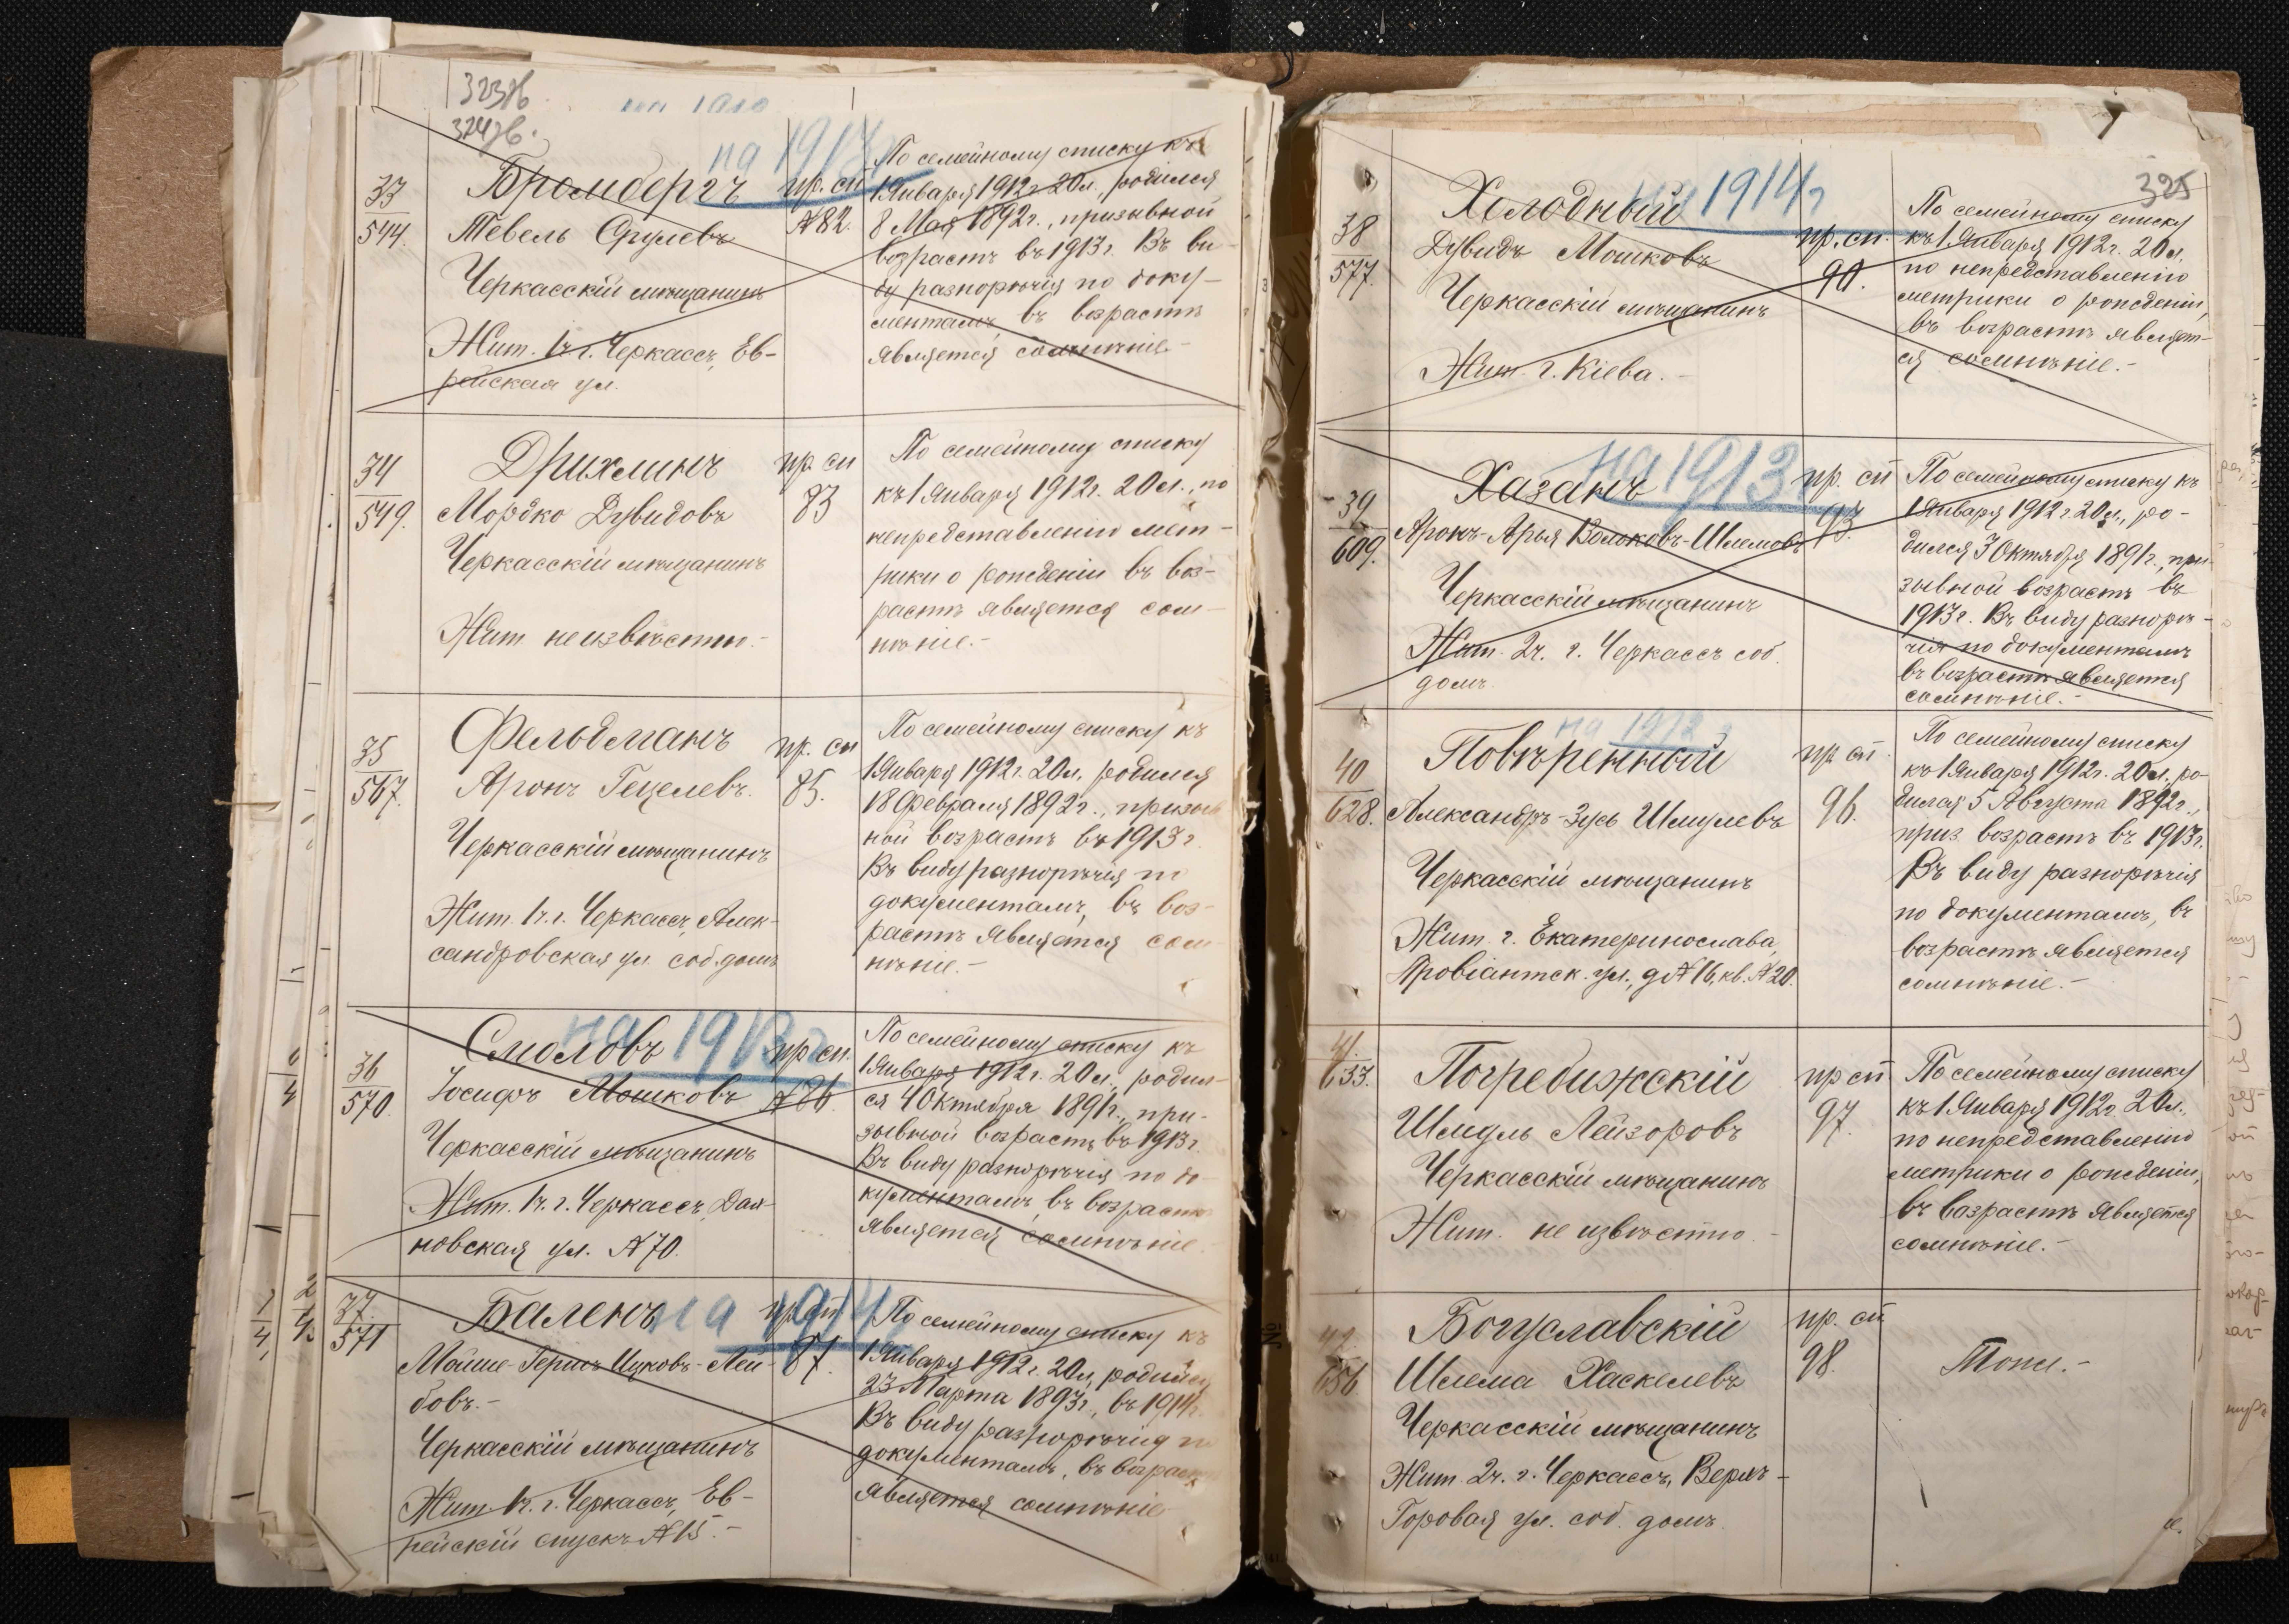 323об
324об.
на 1910
на 1913
33
544.
Бромбергъ
Тевель Срулевъ
Черкасскій мѣщанинъ
Жит. 1ч. г. Черкассъ, Ев-
рейская ул.
пр. сп
№82.
По семейному списку къ
1 Января 1912г. 20 л., родился
8 Мая 1892г., призывной
возрастъ въ 1913г. Въ ви-
ду разнорѣчія по доку-
ментамъ въ возрастѣ
является сомнѣніе.-
34
549.
Дрихлинъ
Мордко Дувидовъ
Черкасскій мѣщанинъ
Жит неизвѣстно.-
пр. сп
83
По семейному списку
къ 1 Января 1912г. 20 л., по
непредставленію мет-
рики о рожденіи въ воз-
растѣ является сом-
нѣніе.-
35
567.
Фельдманъ
Аронъ Гецелевъ.
Черкасскій мѣщанинъ
Жит. 1ч. г. Черкассъ, Алек-
сандровская ул. соб. домъ
пр. сп
85.
По семейному списку къ
1 Января 1912г. 20 л., родился
18 Февраля 1892г., призыв
ной возрастъ въ 1913г.
Въ виду разнорѣчія по
документамъ, въ воз-
растѣ является сом-
нѣніе.-
на 1913г
36
570.
Смоловъ
Іосифъ Мошковъ
Черкасскій мѣщанинъ
Жит. 1ч. г. Черкассъ, Дах-
новская ул. №70.
пр. сп.
№86.
По семейному списку къ
1 Января 1912г. 20 л., родил-
ся 4 Октября 1891г., при-
зывной возрастъ въ 1913г.
Въ виду разнорѣчія по до-
кументамъ, въ возрастѣ
является сомнѣніе.
на 1914
37.
571
Баленъ
Мойше-Гершъ Ицковъ-Лей-
бовъ.-
Черкасскій мѣщанинъ
Жит. 1ч. г. Черкассъ, Ев-
рейскій спускъ №15.-
пр. сп
87.
По семейному списку къ
1 Января 1912г. 20 л., родился
23 Марта 1893г., въ 1914г.
Въ виду разнорѣчія по
документамъ, въ возрастѣ
является сомнѣніе
325
на 1914г
38
577.
Холодный
Дувидъ Мошковъ
Черкасскій мѣщанинъ
Жит. г. Кіева.-
пр. сп.
90.
По семейному списку
къ 1 Января 1912г. 20 л.
по непредставленію
метрики о рожденіи,
въ возрастѣ являет-
ся сомнѣніе.-
на 1913г
39
609.
Хазанъ
Аронъ-Арья Волковъ-Шлемовъ
Черкасскій мѣщанинъ
Жит. 2ч. г. Черкассъ соб.
домъ.
пр. сп
93.
По семейному списку къ
1 Января 1912г. 20 л., ро-
дился 3 Октября 1891г., при-
зывной возрастъ въ
1913г. Въ виду разнорѣ-
чія по документамъ
въ возрастѣ является
сомнѣніе.-
на 1913
40
628.
Повѣренный
Александръ-Зусь Шмулевъ
Черкасскій мѣщанинъ
Жит. г. Екатеринослава,
Провіантск. ул., д №16, кв. №20.
пр. сп.
96.
По семейному списку
къ 1 Января 1912г. 20 л. ро-
дился 5 Августа 1892г.,
приз. возрастъ въ 1913г.
Въ виду разнорѣчія
по документамъ, въ
возрастѣ является
сомнѣніе.-
41.
633.
Погребижскій
Шмуль Лейзоровъ
Черкасскій мѣщанинъ
Жит. не извѣстно.-
пр сп
97.
По семейному списку
къ 1 Января 1912г. 20 л.,
по непредставленію
метрики о рожденіи,
въ возрастѣ является
сомнѣніе.-
42.
656.
Богуславскій
Шлема Хаскелевъ
Черкасскій мѣщанинъ
Жит. 2ч. г. Черкассъ, Верхъ-
Горовая ул. соб. домъ.
пр. сп
98.
Тоже.-